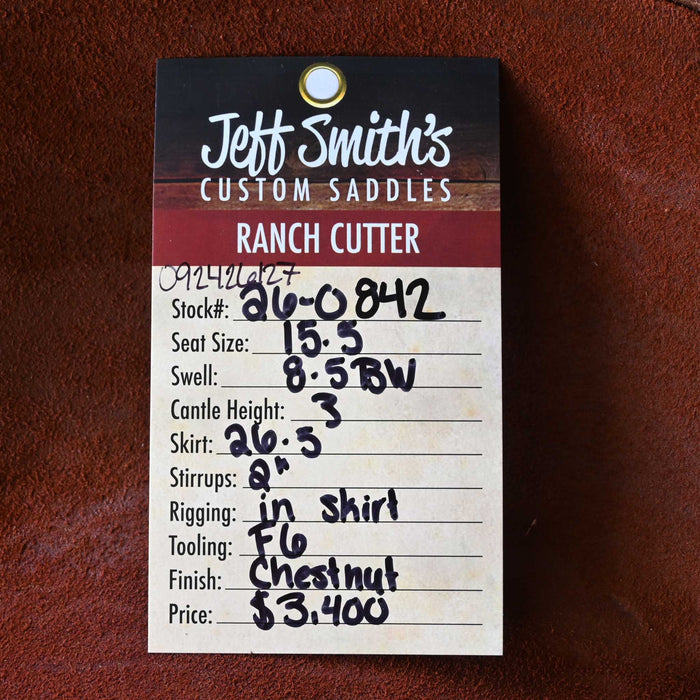 Jeff Smith's
CUSTOM SADDLES
RANCH CUTTER
Stock#: 26-0842
Seat Size: 15.5
Swell: 8.5 BW
Cantle Height: 3
Skirt: 26.5
Stirrups: 2"
Rigging: in skirt
Tooling: F6
Finish: Chestnut
Price: $3,400